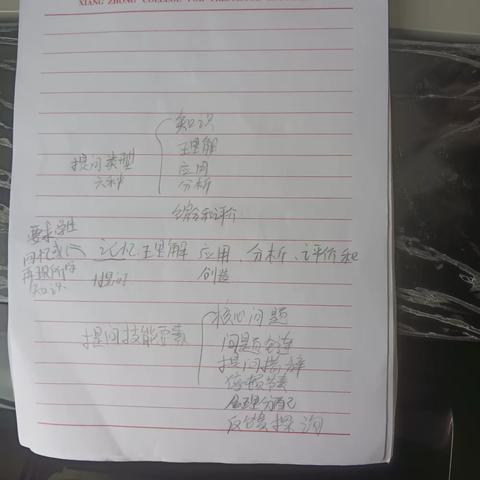 XIANG ZHONG COLLEGE FOR
知识
提问类型
理解
六种
应用
分析
综合和评价
要求学生
回忆或
记忆 理解 应用、分析、评价和
再现所学
知识
提问
创造
核心问题
提问技能要素
问题
提问措辞
停顿节奏
合理分配
反馈探询